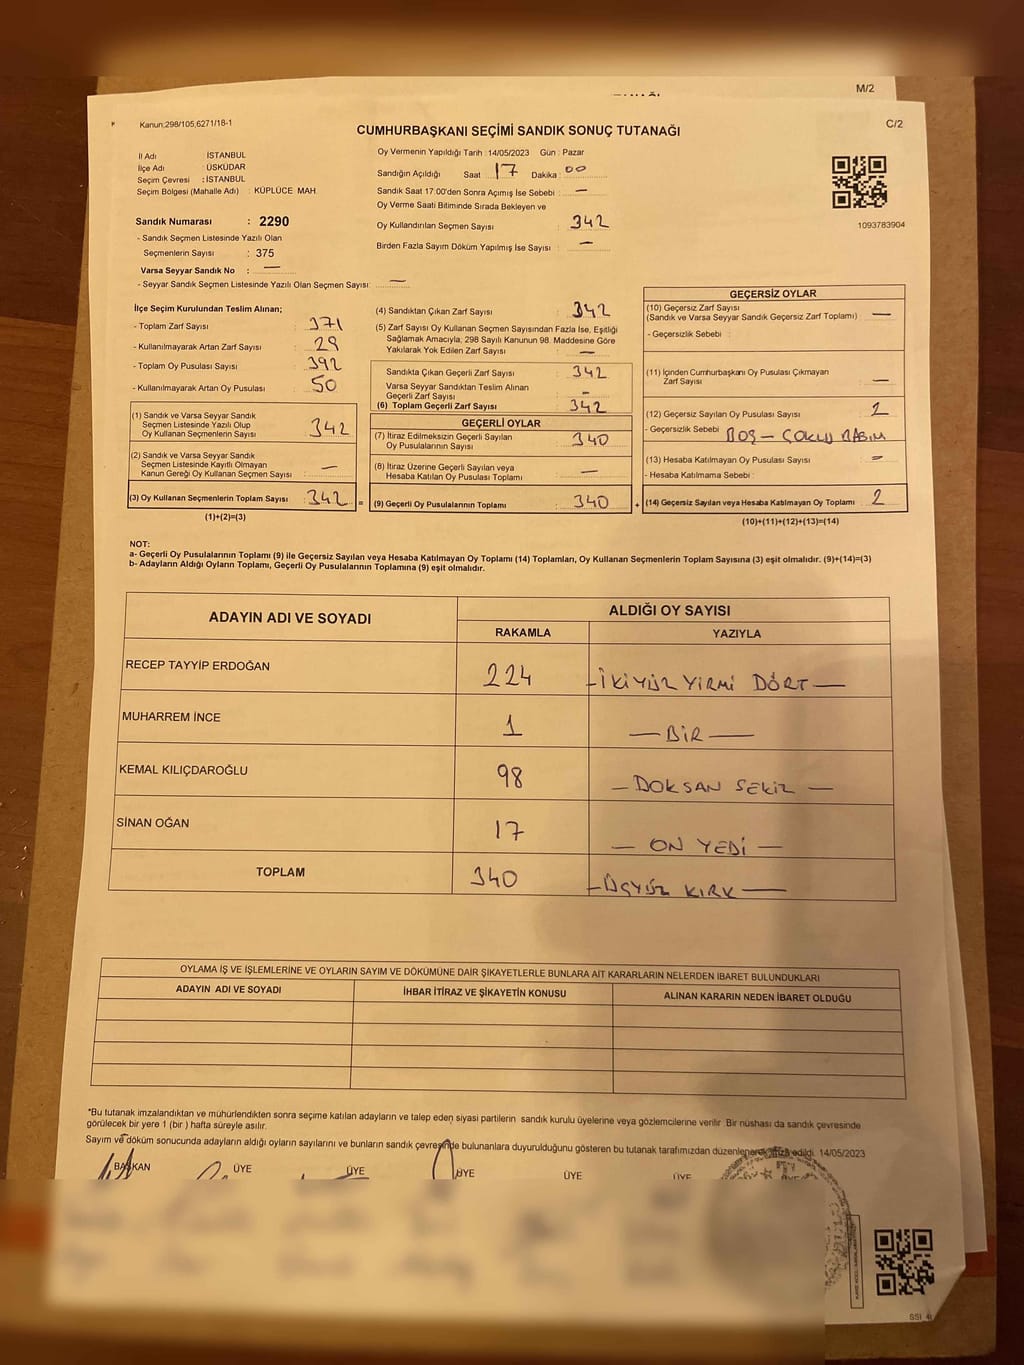 M/2
Kanun;298/105,6271/18-1
CUMHURBAŞKANI SEÇİMİ SANDIK SONUÇ TUTANAĞI
C/2
İl Adı İSTANBUL
İlçe Adı ÜSKÜDAR
Seçim Çevresi : İSTANBUL
Seçim Bölgesi (Mahalle Adı) : KÜPLÜCE MAH.
Sandık Numarası : 2290
- Sandık Seçmen Listesinde Yazılı Olan
Seçmenlerin Sayısı : 375
Varsa Seyyar Sandık No : —
- Seyyar Sandık Seçmen Listesinde Yazılı Olan Seçmen Sayısı: —
Oy Vermenin Yapıldığı Tarih :14/05/2023 Gün : Pazar
Sandığın Açıldığı Saat 17 Dakika 00
Sandık Saat 17.00'den Sonra Açımış İse Sebebi : —
Oy Verme Saati Bitiminde Sırada Bekleyen ve
Oy Kullandırılan Seçmen Sayısı : 342
Birden Fazla Sayım Döküm Yapılmış İse Sayısı : —
1093783904
İlçe Seçim Kurulundan Teslim Alınan;
- Toplam Zarf Sayısı : 371
- Kullanılmayarak Artan Zarf Sayısı : 29
- Toplam Oy Pusulası Sayısı : 392
- Kullanılmayarak Artan Oy Pusulası : 50
(1) Sandık ve Varsa Seyyar Sandık
Seçmen Listesinde Yazılı Olup
Oy Kullanan Seçmenlerin Sayısı : 342
(2) Sandık ve Varsa Seyyar Sandık
Seçmen Listesinde Kayıtlı Olmayan
Kanun Gereği Oy Kullanan Seçmen Sayısı : —
(3) Oy Kullanan Seçmenlerin Toplam Sayısı : 342 =
(1)+(2)=(3)
(4) Sandıktan Çıkan Zarf Sayısı : 342
(5) Zarf Sayısı Oy Kullanan Seçmen Sayısından Fazla İse, Eşitliği
Sağlamak Amacıyla; 298 Sayılı Kanunun 98. Maddesine Göre
Yakılarak Yok Edilen Zarf Sayısı : —
Sandıkta Çıkan Geçerli Zarf Sayısı : 342
Varsa Seyyar Sandıktan Teslim Alınan
Geçerli Zarf Sayısı : —
(6) Toplam Geçerli Zarf Sayısı : 342
GEÇERLİ OYLAR
(7) İtiraz Edilmeksizin Geçerli Sayılan
Oy Pusulalarının Sayısı : 340
(8) İtiraz Üzerine Geçerli Sayılan veya
Hesaba Katılan Oy Pusulaları Toplamı : —
(9) Geçerli Oy Pusulalarının Toplamı : 340 +
GEÇERSİZ OYLAR
(10) Geçersiz Zarf Sayısı
(Sandık ve Varsa Seyyar Sandık Geçersiz Zarf Toplamı) : —
- Geçersizlik Sebebi :
(11) İçinden Cumhurbaşkanı Oy Pusulası Çıkmayan
Zarf Sayısı : —
(12) Geçersiz Sayılan Oy Pusulası Sayısı : 2
- Geçersizlik Sebebi : BOŞ — ÇOKLU BASIM
(13) Hesaba Katılmayan Oy Pusulası Sayısı : —
- Hesaba Katılmama Sebebi :
(14) Geçersiz Sayılan veya Hesaba Katılmayan Oy Toplamı : 2
(10)+(11)+(12)+(13)=(14)
NOT:
a- Geçerli Oy Pusulalarının Toplamı (9) ile Geçersiz Sayılan veya Hesaba Katılmayan Oy Toplamı (14) Toplamları, Oy Kullanan Seçmenlerin Toplam Sayısına (3) eşit olmalıdır. (9)+(14)=(3)
b- Adayların Aldığı Oyların Toplamı, Geçerli Oy Pusulalarının Toplamına (9) eşit olmalıdır.
ADAYIN ADI VE SOYADI ALDIĞI OY SAYISI
RAKAMLA YAZIYLA
RECEP TAYYİP ERDOĞAN 224 — İKİYÜZ YİRMİ DÖRT —
MUHARREM İNCE 1 — BİR —
KEMAL KILIÇDAROĞLU 98 — DOKSAN SEKİZ —
SİNAN OĞAN 17 — ON YEDİ —
TOPLAM 340 — ÜÇYÜZ KIRK —
OYLAMA İŞ VE İŞLEMLERİNE VE OYLARIN SAYIM VE DÖKÜMÜNE DAİR ŞİKAYETLERLE BUNLARA AİT KARARLARIN NELERDEN İBARET BULUNDUKLARI
ADAYIN ADI VE SOYADI İHBAR İTİRAZ VE ŞİKAYETİN KONUSU ALINAN KARARIN NEDEN İBARET OLDUĞU
*Bu tutanak imzalandıktan ve mühürlendikten sonra seçime katılan adayların ve talep eden siyasi partilerin sandık kurulu üyelerine veya gözlemcilerine verilir. Bir nüshası da sandık çevresinde
görülecek bir yere 1 (bir ) hafta süreyle asılır.
Sayım ve döküm sonucunda adayların aldığı oyların sayılarını ve bunların sandık çevresinde bulunanlara duyurulduğunu gösteren bu tutanak tarafımızdan düzenlenerek imza edildi. 14/05/2023
BAŞKAN ÜYE ÜYE ÜYE ÜYE ÜYE ÜYE